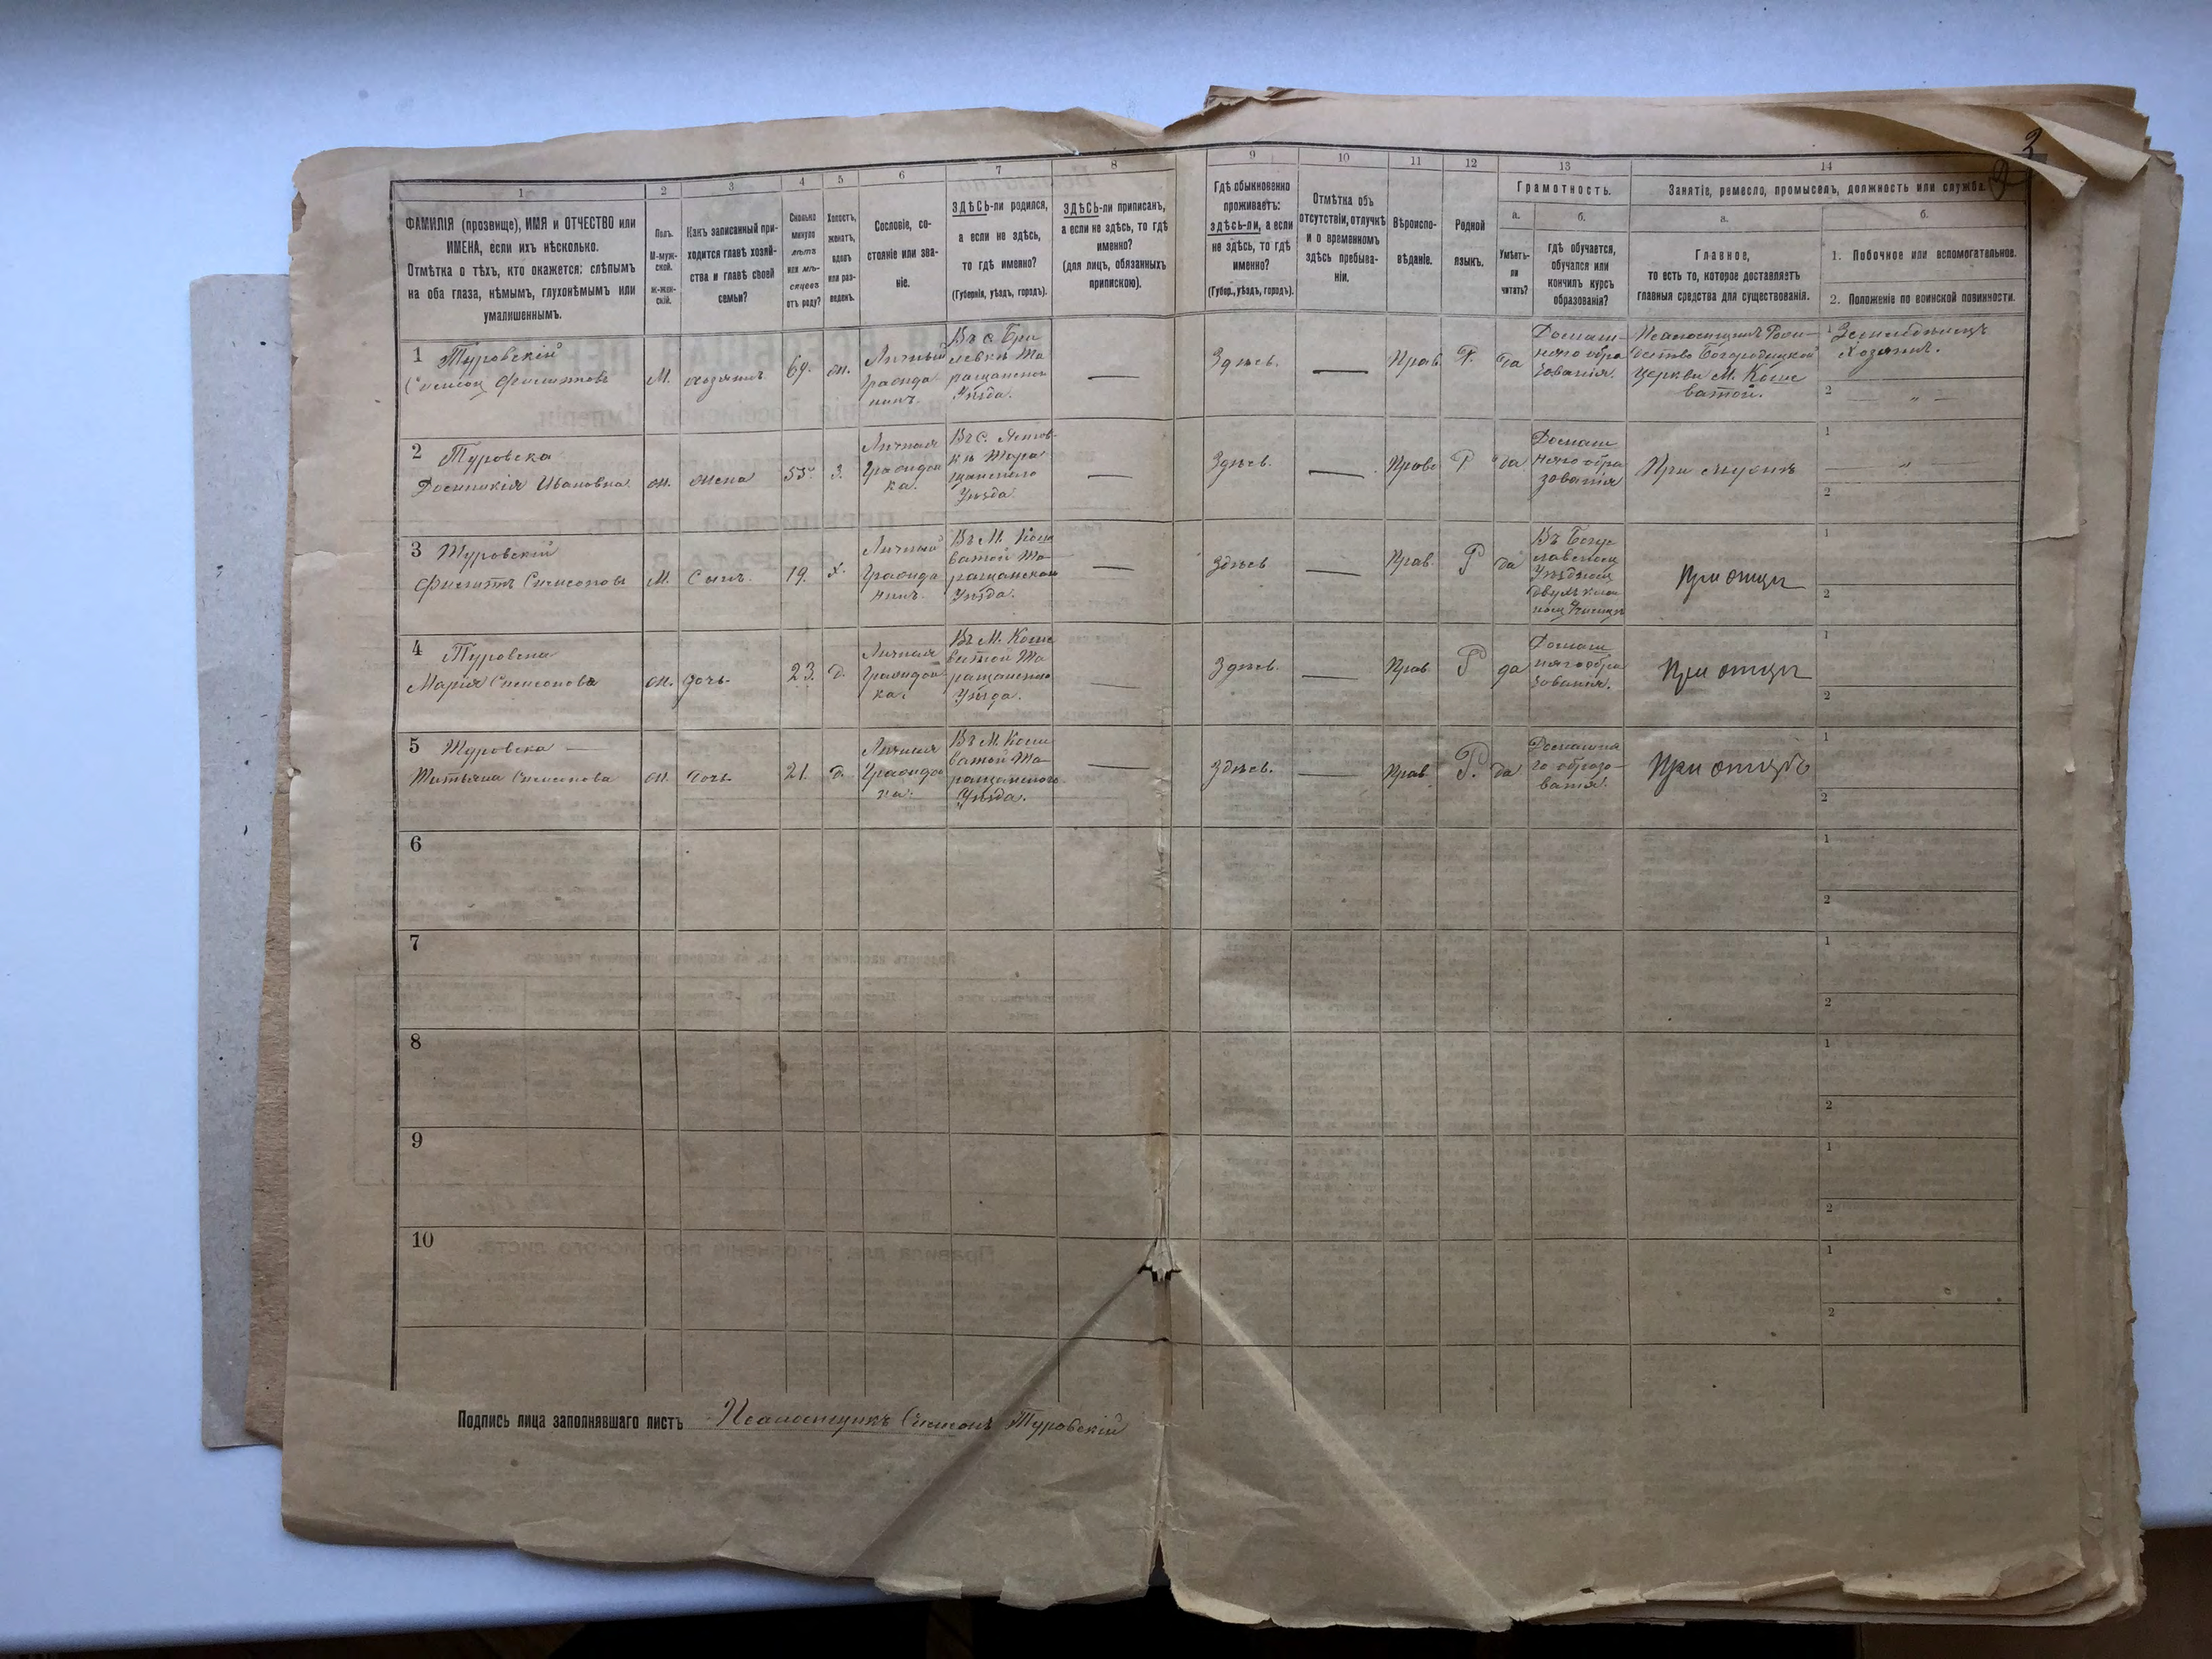 3
1
2
3
4
5
6
7
8
9
10
11
12
13
14
ФАМИЛІЯ (прозвище), ИМЯ и ОТЧЕСТВО или
ИМЕНА, если ихъ нѣсколько.
Отмѣтка о тѣхъ, кто окажется: слѣпымъ
на оба глаза, нѣмымъ, глухонѣмымъ или
умалишеннымъ.
Полъ.
М-муж-
ской.
Ж-жен-
скій.
Какъ записанный при-
ходится главѣ хозяй-
ства и главѣ своей
семьи?
Сколько
минуло
лѣтъ
или мѣ-
сяцевъ
отъ роду?
Холостъ,
женатъ,
вдовъ
или раз-
веденъ.
Сословіе, со-
стояніе или зва-
ніе.
ЗДѢСЬ-ли родился,
а если не здѣсь,
то гдѣ именно?
(Губернія, уѣздъ, городъ).
ЗДѢСЬ-ли приписанъ,
а если не здѣсь, то гдѣ
именно?
(для лицъ, обязанныхъ
припискою).
Гдѣ обыкновенно
проживаетъ:
здѣсь-ли, а если
не здѣсь, то гдѣ
именно?
(Губер., уѣздъ, городъ).
Отмѣтка объ
отсутствіи, отлучкѣ
и о временномъ
здѣсь пребыва-
ніи.
Вѣроиспо-
вѣданіе.
Родной
языкъ.
Грамотность.
а.
Умѣетъ-
ли
читать?
б.
гдѣ обучается,
обучался или
кончилъ курсъ
образованія?
Занятіе, ремесло, промыселъ, должность или служба.
а.
Главное,
то есть то, которое доставляетъ
главныя средства для существованія.
б.
1. Побочное или вспомогательное.
2. Положеніе по воинской повинности.
1 Туровскій
Симеон Филиппов
М.
хозяинъ
69.
ж.
Личный
Гражда
нинъ.
Въ с.
Та
ращанскаго
Уѣзда.
—
Здѣсь.
—
Прав
Р.
да
Домаш-
няго обра
зованія.
Псаломщикъ Рож-
дество Богородицкой
Церкви М. Коше
ватой.
1 Земледѣлецъ
Хозяинъ.
2 — „ —
2 Туровска
Ивановна
ж.
жена
55
З.
Личная
Граждан
ка.
Въ с.
Тара
щанскаго
Уѣзда.
—
Здѣсь.
—
Право
Р
да
Домаш
няго обра
зованія
При мужѣ
1
— „
2
3 Туровскій
Филиппъ Симеоновъ
М.
Сынъ.
19.
х.
Личный
Гражда
нинъ.
Въ М. Коше
ватой Та
ращанскаго
Уѣзда.
—
Здѣсь
—
Прав.
Р
да
Въ Богу
славском
Уѣздном
двухъ клас
ном Училищѣ
При отцѣ
1
2
4 Туровска
Мария Симеонова
ж.
дочь
23.
д.
Личная
Граждан
ка.
Въ М. Коше
ватой Та
ращанскаго
Уѣзда.
—
Здѣсь.
—
Прав
Р
да
Домаш
няго обра
зованія.
При отцѣ
1
2
5 Туровска —
Татьяна Симеонова
ж.
дочь
21.
д.
Личная
Граждан
ка.
Въ М. Коше
ватой Та
ращанского
Уѣзда.
Здѣсь.
—
Прав
Р.
да
Домашня
го образо-
ванія.
При отцѣ
1
2
6
1
2
7
1
2
8
1
2
9
1
2
10
1
2
Подпись лица заполнявшаго листъ Псаломщикъ Симеонъ Туровскій